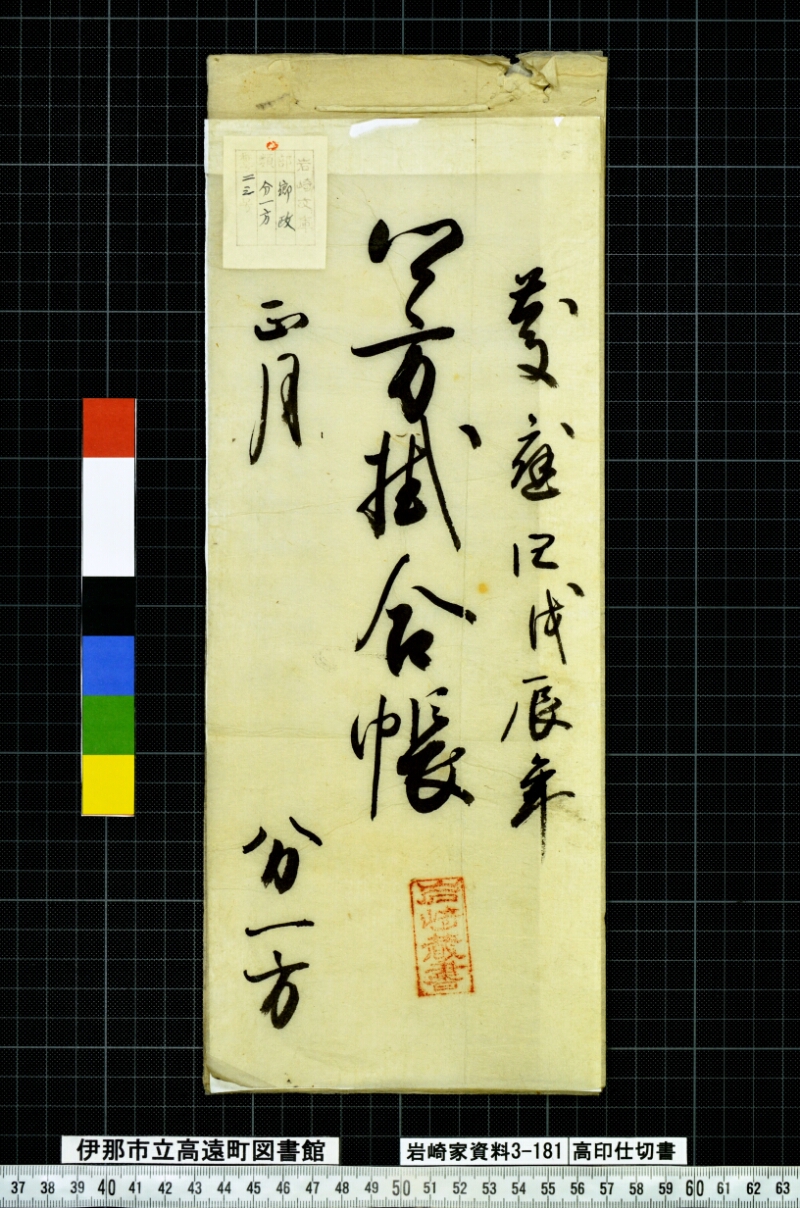 慶應四戊辰年
方掛合帳
正月
分一方
岩崎蔵書
郷政
分一方
二三
伊那市立高遠町図書館
岩崎家資料3-181
高印仕切書
37 38 39 40 41 42 43 44 45 46 47 48 49 50 51 52 53 54 55 56 57 58 59 60 61 62 63